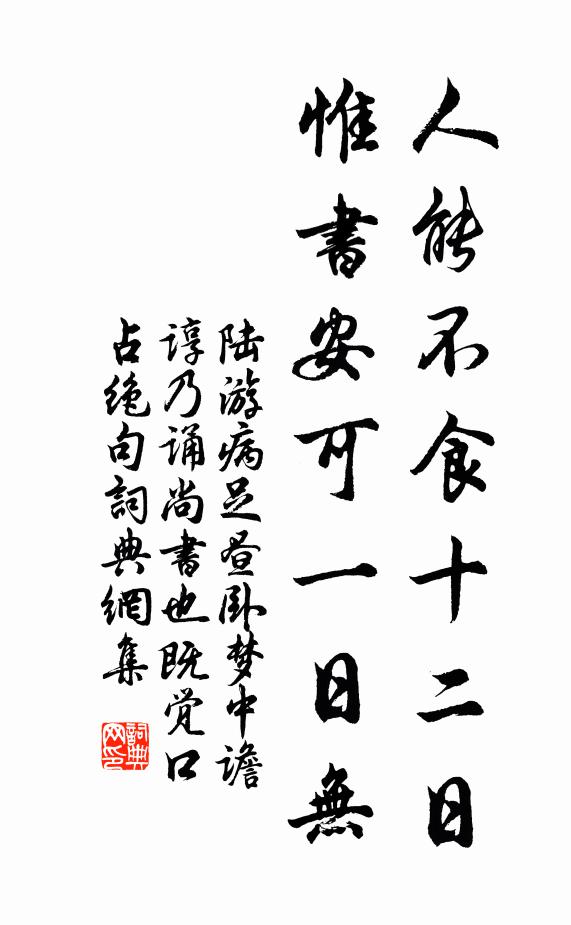 人能不食十二日
惟書安可一日無
陆游病足昼卧梦中谵
谆乃诵尚書也既觉口
占绝句詞典網集
詞典网印